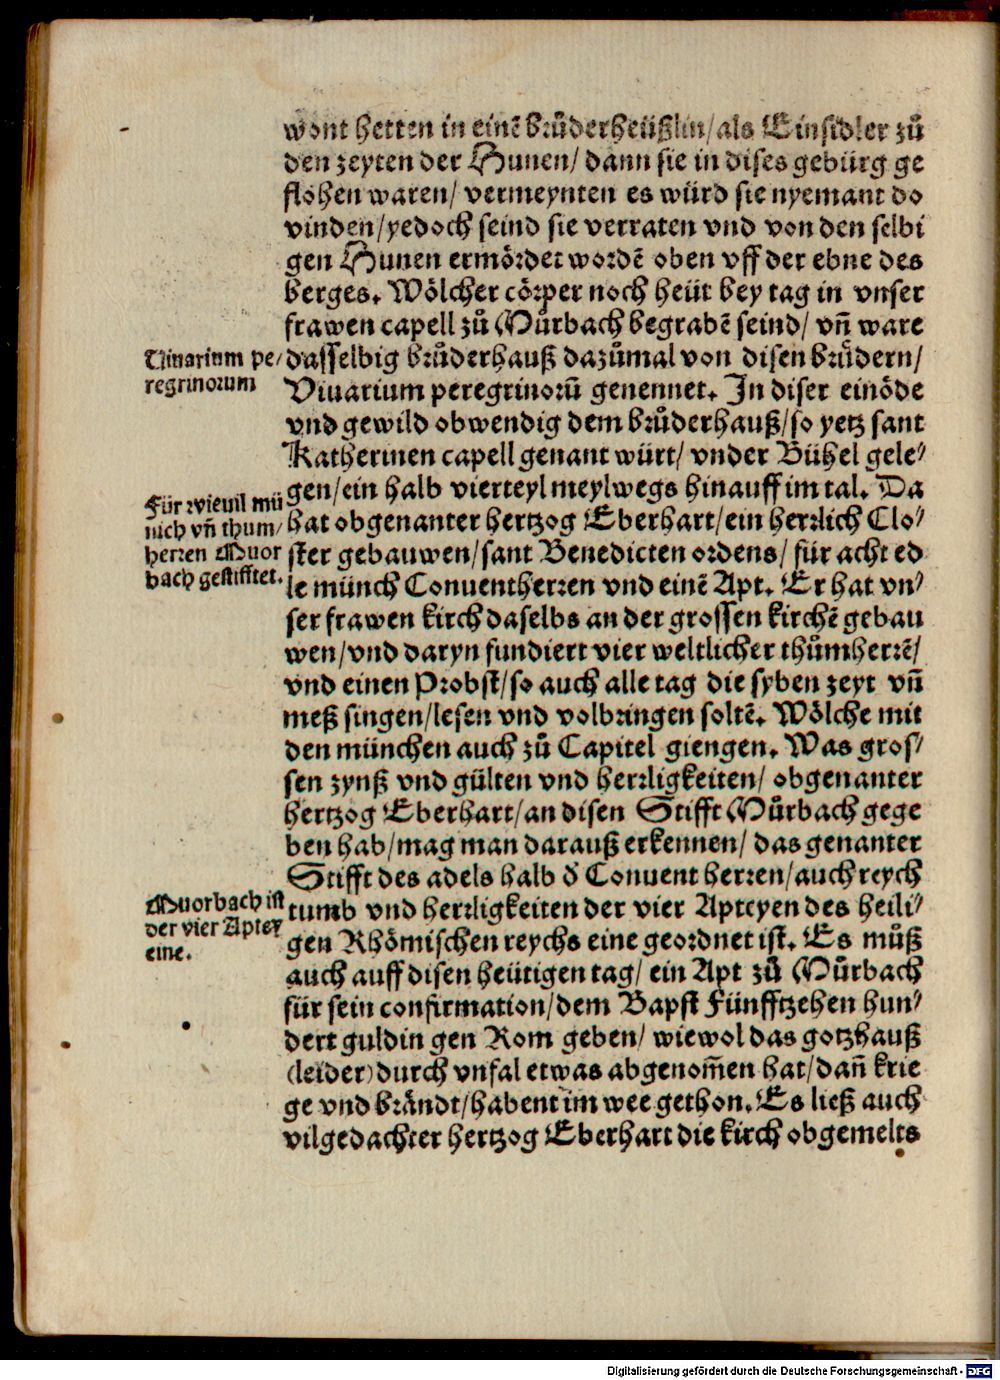 wont hetten in einē brůderheüßlin/als Einsidler zů
den zeyten der Hunen/ dann sie in dises gebürg ge
flohen waren/ vermeynten es würd sie nyemant do
vinden/yedoch seind sie verraten vnd von den selbi
gen Hunen ermördet wordē oben vff der ebne des
berges. Wölcher cörper noch heüt bey tag in vnser
frawen capell zů Můrbach begrabē seind/ vñ ware
Viuarium pe/
regrinorum
dasselbig brůderhauß dazůmal von disen brüdern/
Viuarium peregrinorū genennet. In diser einöde
vnd gewild obwendig dem brůderhauß/so yetz sant
Katherinen capell genant würt/ vnder Bühel gele/
Für wieuil mü
nich vñ thum/
herren Muor
bach gestifftet.
gen/ein halb vierteyl meylwegs hinauff im tal. Da
hat obgenanter hertzog Eberhart/ein herrlich Clo/
ster gebauwen/sant Benedicten ordens/ für acht ed
le münch Conuentherren vnd einē Apt. Er hat vn/
ser frawen kirch daselbs an der grossen kirchē gebau
wen/vnd daryn fundiert vier weltlicher thůmherrē/
vnd einen Probst/so auch alle tag die syben zeyt vñ
meß singen/lesen vnd volbringen soltē. Wölche mit
den münchen auch zů Capitel giengen. Was gros/
sen zynß vnd gülten vnd herrligkeiten/ obgenanter
hertzog Eberhart/an disen Stifft Můrbach gege
ben hab/mag man darauß erkennen/ das genanter
Stifft des adels halb d' Conuent herren/auch reych
Muorbach ist
der vier Aptey
eine.
tumb vnd herrligkeiten der vier Apteyen des heili/
gen Rhömischen reychs eine geordnet ist. Es můß
auch auff disen heütigen tag/ ein Apt zů Můrbach
für sein confirmation/dem Bapst Fünfftzehen hun/
dert guldin gen Rom geben/ wiewol das gotzhauß
(leider)durch vnfal etwas abgenom̄en hat/dañ krie
ge vnd brändt/habent im wee gethon. Es ließ auch
vilgedachter hertzog Eberhart die kirch obgemelts
Digitalisierung gefördert durch die Deutsche Forschungsgemeinschaft - DFG